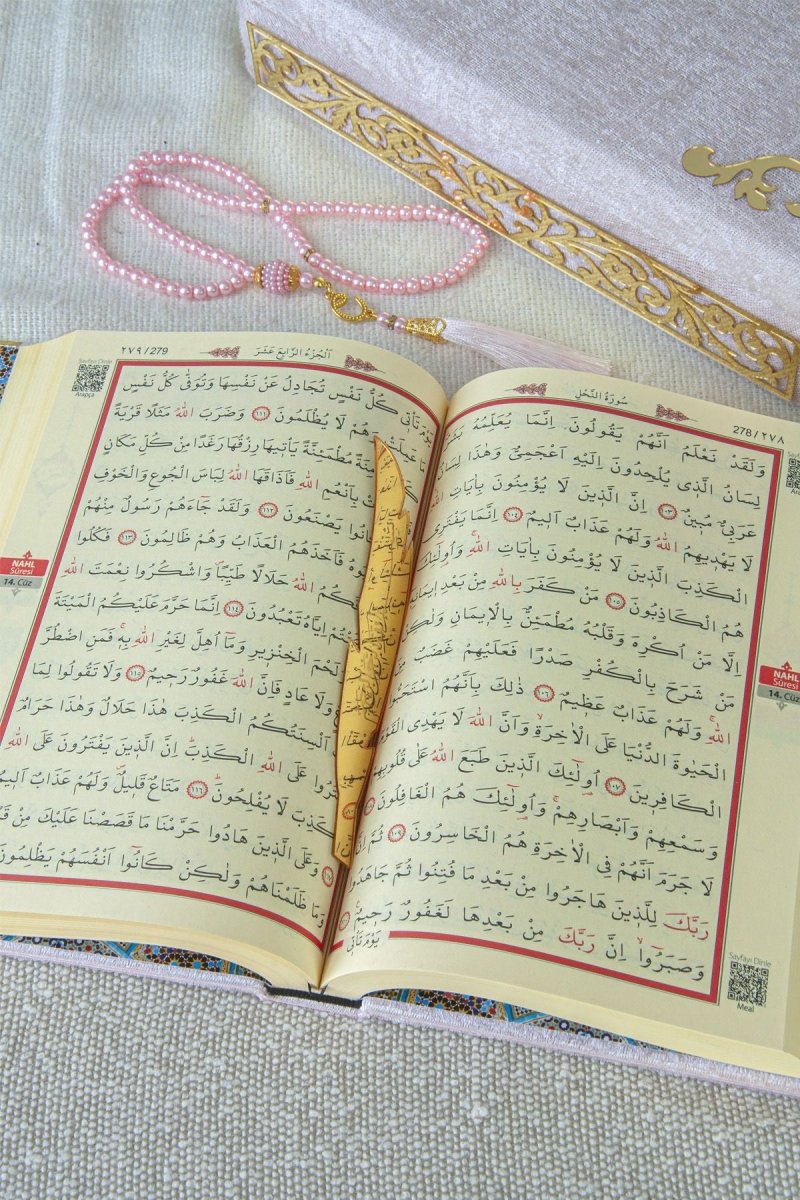 سُورَةُ النَّحْلِ
278/٢٧٨
وَلَقَدْ نَعْلَمُ اَنَّهُمْ يَقُولُونَ اِنَّمَا يُعَلِّمُهُ بَشَرٌ
لِسَانُ الَّذ۪ي يُلْحِدُونَ اِلَيْهِ اَعْجَمِيٌّ وَهٰذَا لِسَانٌ
عَرَبِيٌّ مُب۪ينٌ ١٠٣ اِنَّ الَّذ۪ينَ لَا يُؤْمِنُونَ بِاٰيَاتِ اللّٰهِ
لَا يَهْد۪يهِمُ اللّٰهُ وَلَهُمْ عَذَابٌ اَل۪يمٌ ١٠٤ اِنَّمَا يَفْتَرِي
الْكَذِبَ الَّذ۪ينَ لَا يُؤْمِنُونَ بِاٰيَاتِ اللّٰهِ وَاُو۬لٰٓئِكَ
هُمُ الْكَاذِبُونَ ١٠٥ مَنْ كَفَرَ بِاللّٰهِ مِنْ بَعْدِ ا۪يمَانِه۪
اِلَّا مَنْ اُكْرِهَ وَقَلْبُهُ مُطْمَئِنٌّ بِالْا۪يمَانِ وَلٰكِنْ
مَنْ شَرَحَ بِالْكُفْرِ صَدْرًا فَعَلَيْهِمْ غَضَبٌ
اللّٰهِ وَلَهُمْ عَذَابٌ عَظ۪يمٌ ١٠٦ ذٰلِكَ بِاَنَّهُمُ اسْتَحَبُّوا
الْحَيٰوةَ الدُّنْيَا عَلَى الْاٰخِرَةِ وَاَنَّ اللّٰهَ لَا يَهْدِي الْقَوْمَ
الْكَافِر۪ينَ ١٠٧ اُو۬لٰٓئِكَ الَّذ۪ينَ طَبَعَ اللّٰهُ عَلٰى قُلُوبِهِمْ
وَسَمْعِهِمْ وَاَبْصَارِهِمْ وَاُو۬لٰٓئِكَ هُمُ الْغَافِلُونَ ١٠٨
لَا جَرَمَ اَنَّهُمْ فِي الْاٰخِرَةِ هُمُ الْخَاسِرُونَ ١٠٩ ثُمَّ اِنَّ
رَبَّكَ لِلَّذ۪ينَ هَاجَرُوا مِنْ بَعْدِ مَا فُتِنُوا ثُمَّ جَاهَدُوا
وَصَبَرُٓوا اِنَّ رَبَّكَ مِنْ بَعْدِهَا لَغَفُورٌ رَح۪يمٌ ١١٠
يَوْمَ تَأْت۪ي
NAHL
Sûresi
14. Cüz
Sayfayı Dinle
Meal
اَلْجُزْءُ الرَّابِعَ عَشَرَ
٢٧٩/279
Sayfayı Dinle
Arapça
يَوْمَ تَأْت۪ي كُلُّ نَفْسٍ تُجَادِلُ عَنْ نَفْسِهَا وَتُوَفّٰى كُلُّ نَفْسٍ
مَا عَمِلَتْ وَهُمْ لَا يُظْلَمُونَ ١١١ وَضَرَبَ اللّٰهُ مَثَلًا قَرْيَةً
مُطْمَئِنَّةً يَأْت۪يهَا رِزْقُهَا رَغَدًا مِنْ كُلِّ مَكَانٍ
بِاَنْعُمِ اللّٰهِ فَاَذَاقَهَا اللّٰهُ لِبَاسَ الْجُوعِ وَالْخَوْفِ
كَانُوا يَصْنَعُونَ ١١٢ وَلَقَدْ جَٓاءَهُمْ رَسُولٌ مِنْهُمْ
فَاَخَذَهُمُ الْعَذَابُ وَهُمْ ظَالِمُونَ ١١٣ فَكُلُوا
اللّٰهُ حَلَالًا طَيِّبًا وَاشْكُرُوا نِعْمَتَ اللّٰهِ
اِيَّاهُ تَعْبُدُونَ ١١٤ اِنَّمَا حَرَّمَ عَلَيْكُمُ الْمَيْتَةَ
لَحْمَ الْخِنْز۪يرِ وَمَٓا اُهِلَّ لِغَيْرِ اللّٰهِ بِه۪ فَمَنِ اضْطُرَّ
وَلَا عَادٍ فَاِنَّ اللّٰهَ غَفُورٌ رَح۪يمٌ ١١٥ وَلَا تَقُولُوا لِمَا
اَلْسِنَتُكُمُ الْكَذِبَ هٰذَا حَلَالٌ وَهٰذَا حَرَامٌ
عَلَى اللّٰهِ الْكَذِبَ اِنَّ الَّذ۪ينَ يَفْتَرُونَ عَلَى اللّٰهِ
الْكَذِبَ لَا يُفْلِحُونَ ١١٦ مَتَاعٌ قَل۪يلٌ وَلَهُمْ عَذَابٌ اَل۪يمٌ
١١٧ وَعَلَى الَّذ۪ينَ هَادُوا حَرَّمْنَا مَا قَصَصْنَا عَلَيْكَ مِنْ
وَمَا ظَلَمْنَاهُمْ وَلٰكِنْ كَانُٓوا اَنْفُسَهُمْ يَظْلِمُونَ
NAHL
Sûresi
14. Cüz